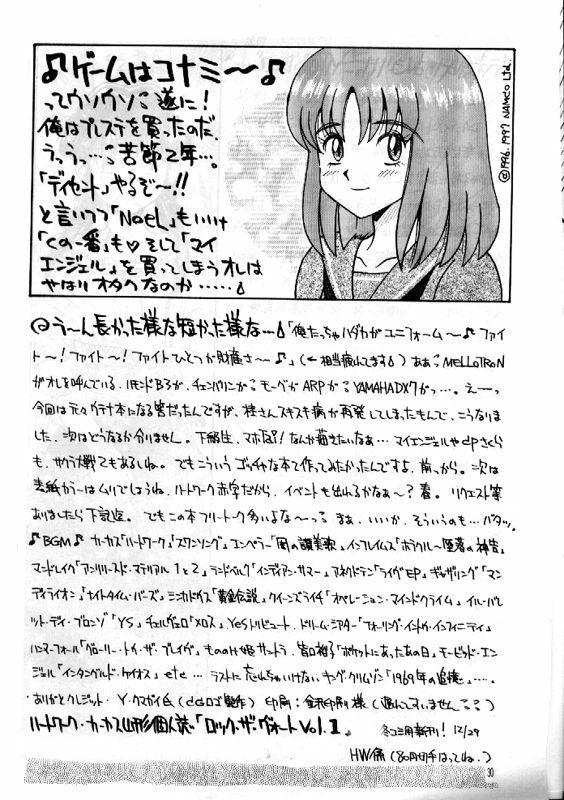 ♪ゲームはコナミ〜♪
ってウソウソ 遂に!
俺はプレステを買ったのだ
うっうっ…苦節2年…。
「ディセント」やるぞ〜!!
と言いつつ「NoëL」もいいけ
「くの一番」も♡そして「マイ
エンジェル」を買ってしまうオレは
やはりオタクなのか……
©1996, 1997 NAMCO Ltd.
う〜ん長かった様な短かった様な…「俺たっちゃハダカがユニフォーム〜♪ファイ
ト〜!ファイト〜!ファイトひとつが財産さ〜♪」(←相当疲れてます)ああ MELLOTRON
がオレを呼んでいる.ハモンドB3が,チェンバリンが モーグが ARPが YAMAHA DX7がっ…。えーっ
今回は元々 本になる筈だったんですが、桂さんスキスキ病が再発してしまったもんで、こうなりま
した、次はどうなるか分りません。下級生、なんか描きたいなぁ…マイエンジェルや さくら
も、サクラ大戦てもあるしね。でもこういうゴッチャな本て作ってみたかったんですよ、前っから。次は
表紙カラーはムリでしょうね、ハートワーク赤字だから、イベントも出れるかなぁ〜?春。リクエスト等
ありましたら下記迄。でもこの本フリートーク多いよな〜っ まぁ、いいか、そういうのも…バタッ。
♪BGM♪カーカス「ハートワーク」「スワンソング」エンペラー「闇の讃美歌」インフレイムス「 の神告」
マーシレイク「アンリリースド・マテリアル1と2」ランドベルグ「インディアン・サマー」アネクドテン「ライヴEP」ギャザリング「マン
ディライオン」「ナイトタイム・バーズ」ミカドガス「黄金伝説」クイーンズライチ「オペレーション・マインドクライム」イル・バレ
ット・ディ・ブロンゾ「YS」チェルヴェロ「メロス」Yesトリビュート.ドリーム・シアター「フォーリング・イントゥ・インフィニティ」
ハンマーフォール「グローリー・トゥ・ザ・ブレイヴ」もののけ姫サントラ.皆口裕子「ポケットにあったあの日」モービッド・エン
ジェル「インタングルド・ケイオス」etc…ラストに忘れちゃいけないキング・クリムゾン「1969年の追憶」…。
ありがとクレジット・Y・クマガイ氏( ロゴ製作) 印刷:金沢印刷様(遅れてすいません)
ハートワーク・カーカス山形個人誌・「ロック・ザ・ヴォートVol.1」 冬コミ用新刊!12/29
HW係(80円切手はってね。)
30